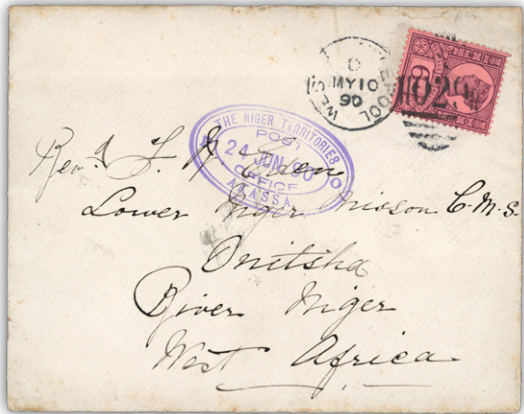 WEST LIVERPOOL
MY 10
90
6
029
THE NIGER TERRITORIES
POST
24 JUN 90
OFFICE
AKASSA
Revd. F. N. Eden
Lower Niger Mission C.M.S.
Onitsha
River Niger
West Africa